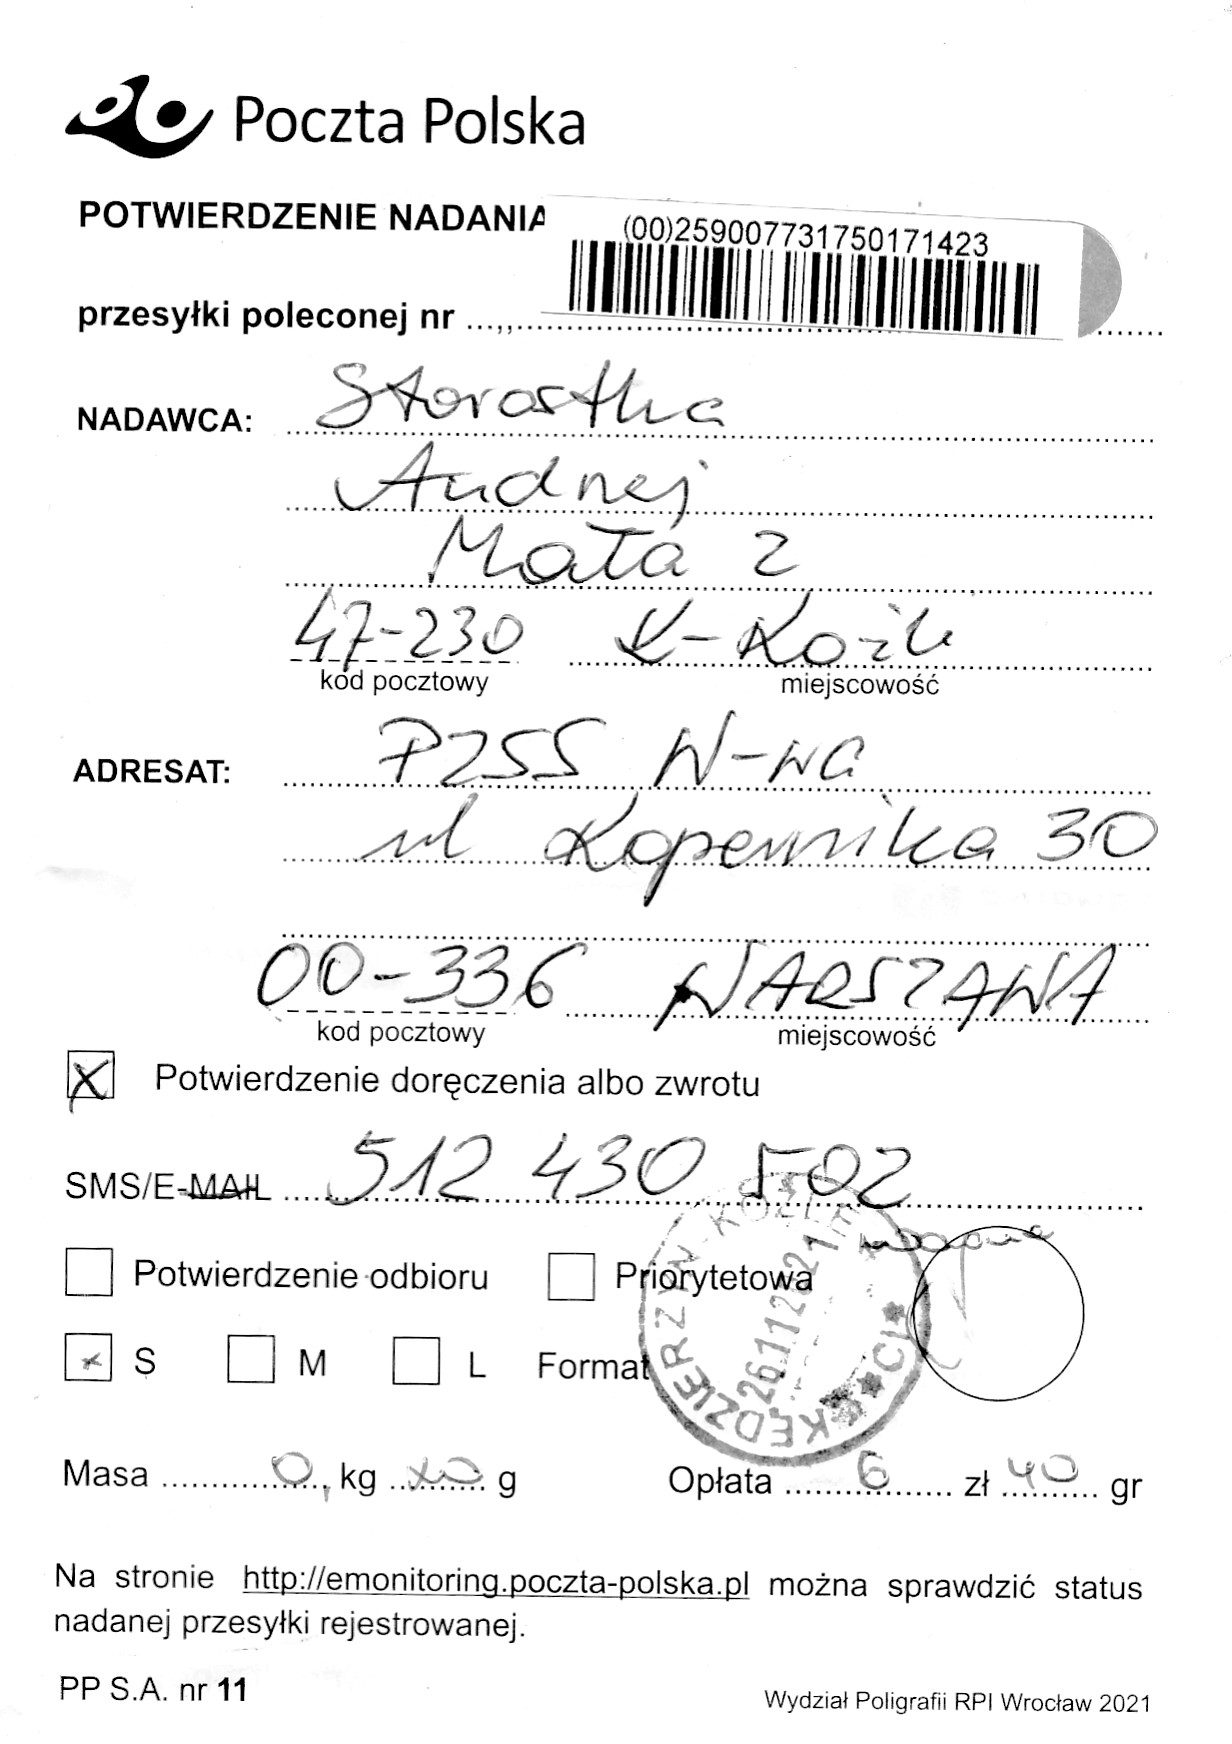 Poczta Polska
POTWIERDZENIE NADANIA
(00)259007731750171423
przesyłki poleconej nr
NADAWCA: Starostka
Andrzej
Mała 2
47-230 K-Koźle
kod pocztowy miejscowość
ADRESAT: PZSS W-wa
ul Kopernika 30
00-336 WARSZAWA
kod pocztowy miejscowość
X Potwierdzenie doręczenia albo zwrotu
SMS/E-MAIL 512 430 502
Potwierdzenie odbioru Priorytetowa
x S M L Format
KĘDZIERZYN KOŹLE
Masa 0, kg g Opłata 6 zł 40 gr
Na stronie http://emonitoring.poczta-polska.pl można sprawdzić status
nadanej przesyłki rejestrowanej.
PP S.A. nr 11 Wydział Poligrafii RPI Wrocław 2021